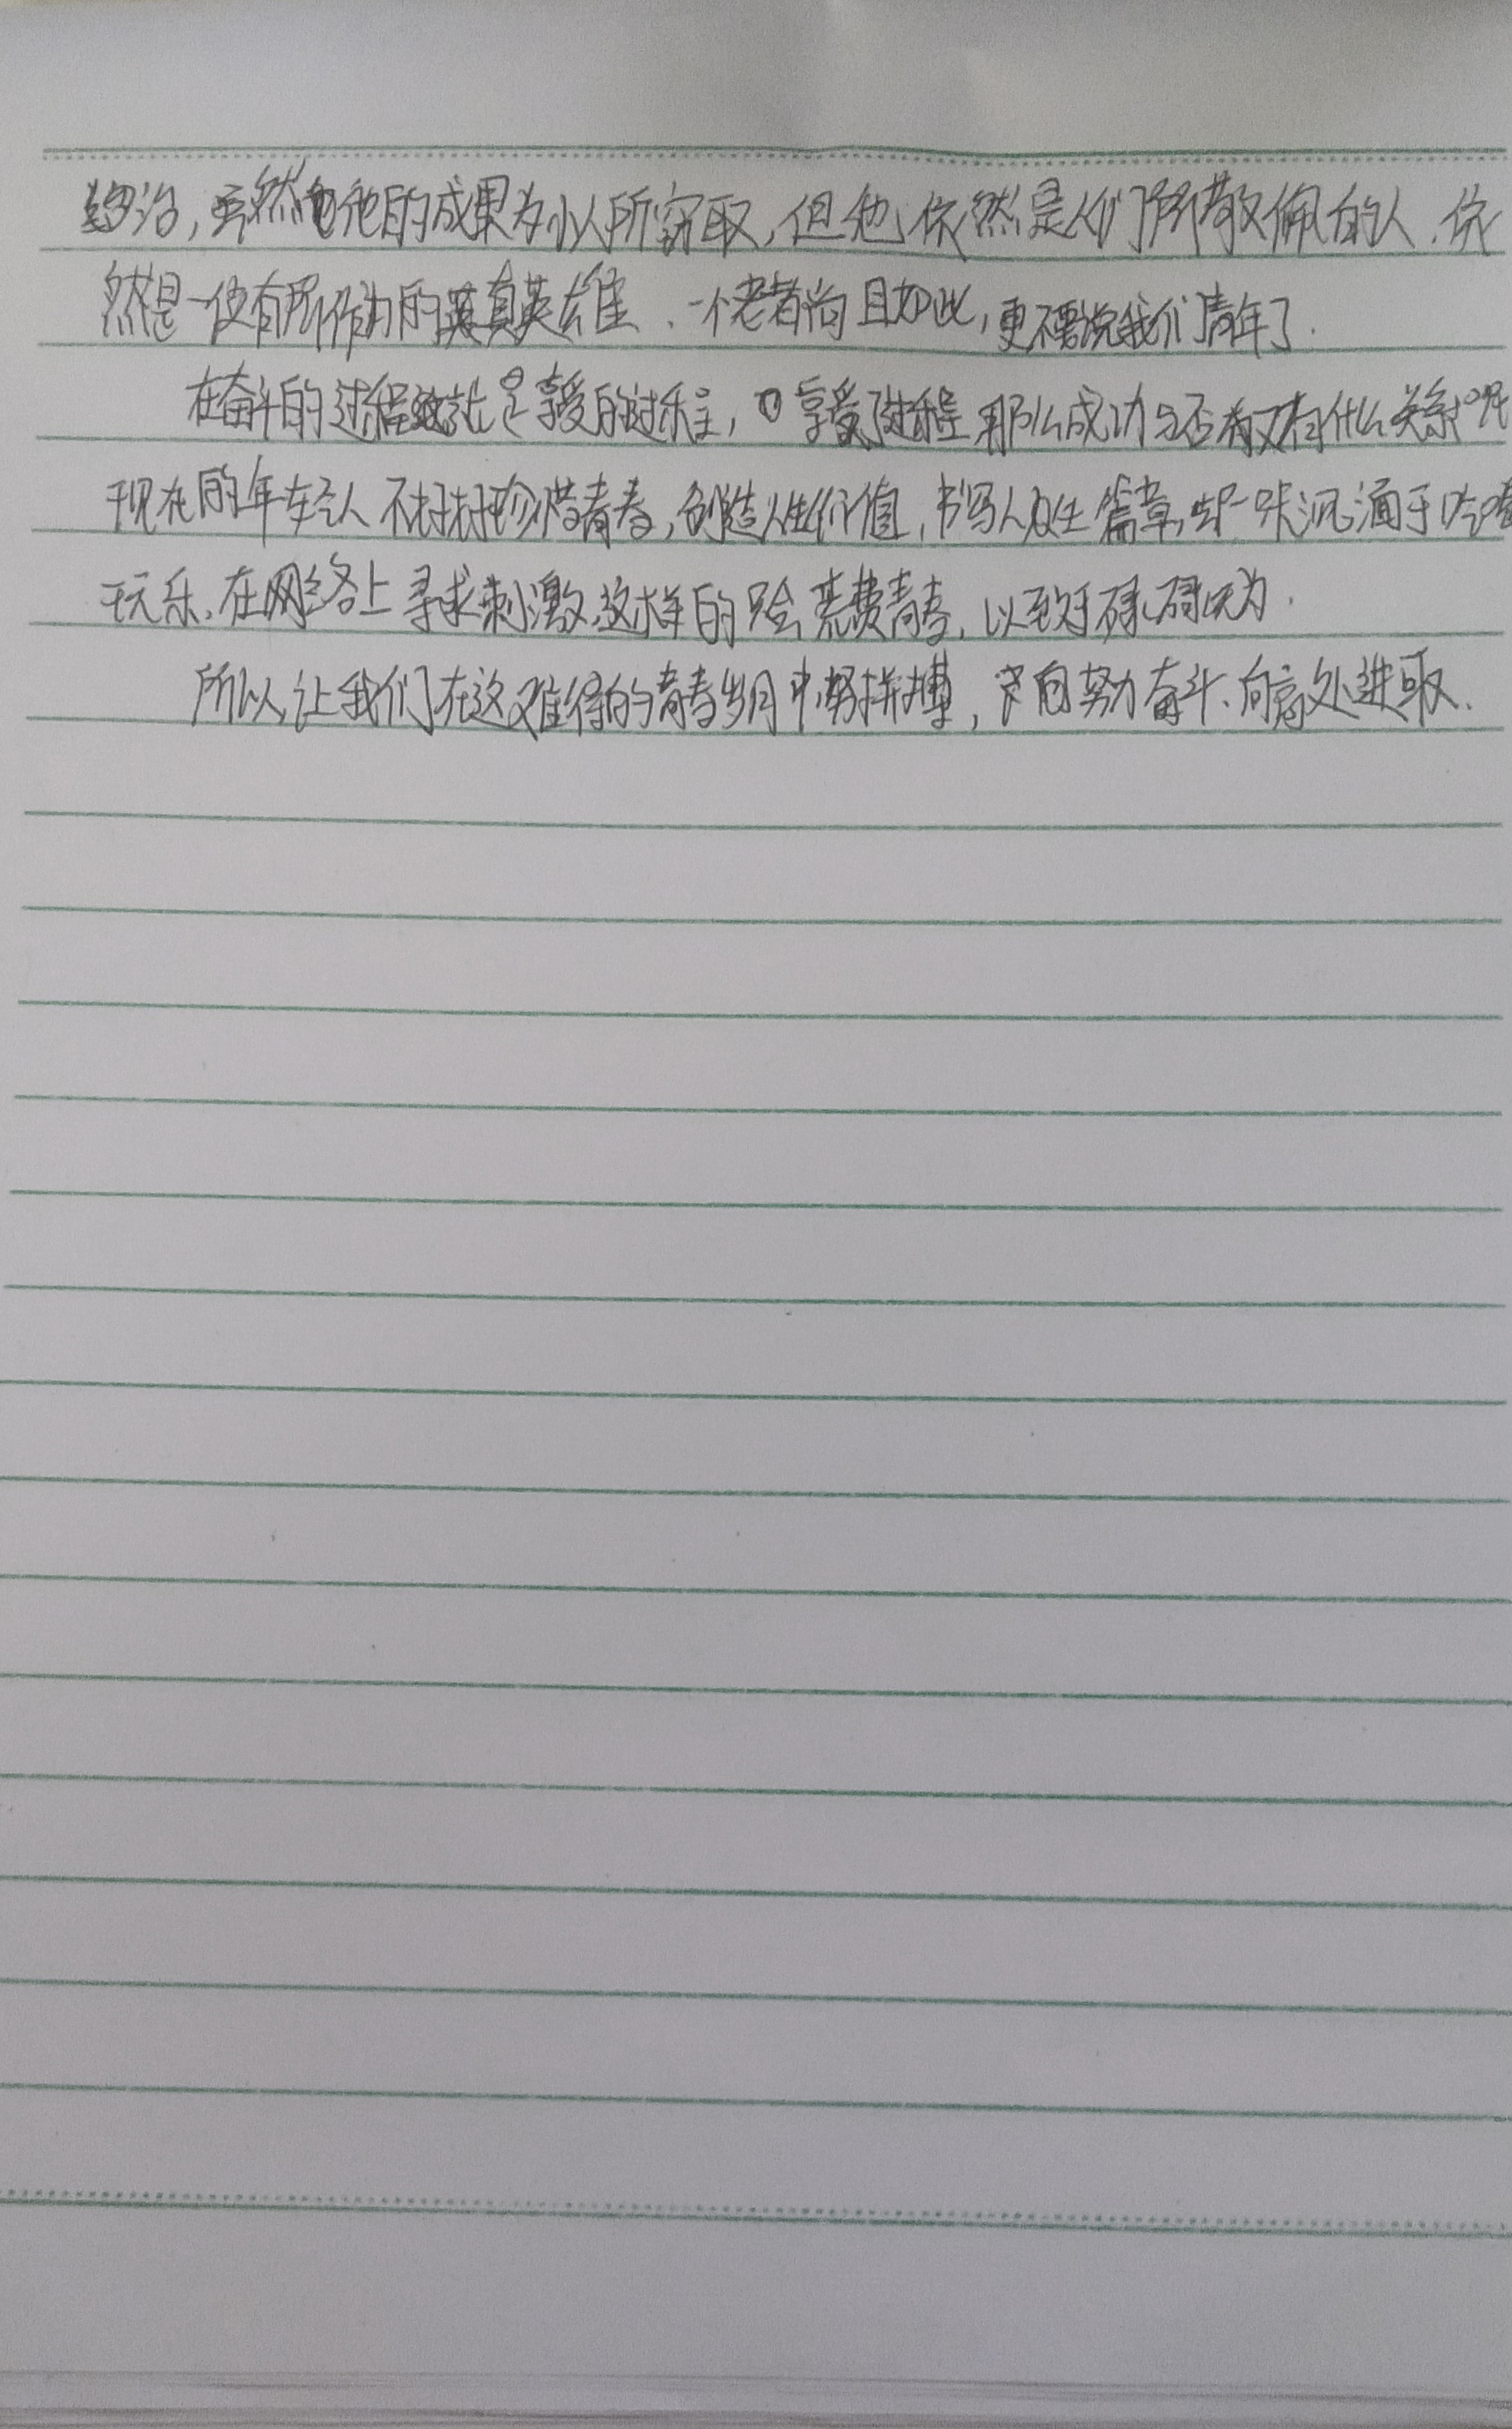 统治，虽然他的成果为小人所窃取，但他依然是人们所敬佩的人，依
然是一位有所作为的真英雄、一个老者尚且如此，更不要说我们青年了．
在奋斗的过程就是享受的过程，享受了过程那么成功与否又有什么关系呢
现在的年轻人不好好珍惜青春，创造人生价值，书写人生篇章，却一味沉湎于吃喝
玩乐、在网络上寻求刺激，这样的只会荒费青春，以致于碌碌无为．
所以，让我们在这难得的青春岁月中努拼搏，自努力奋斗、向高处进取．